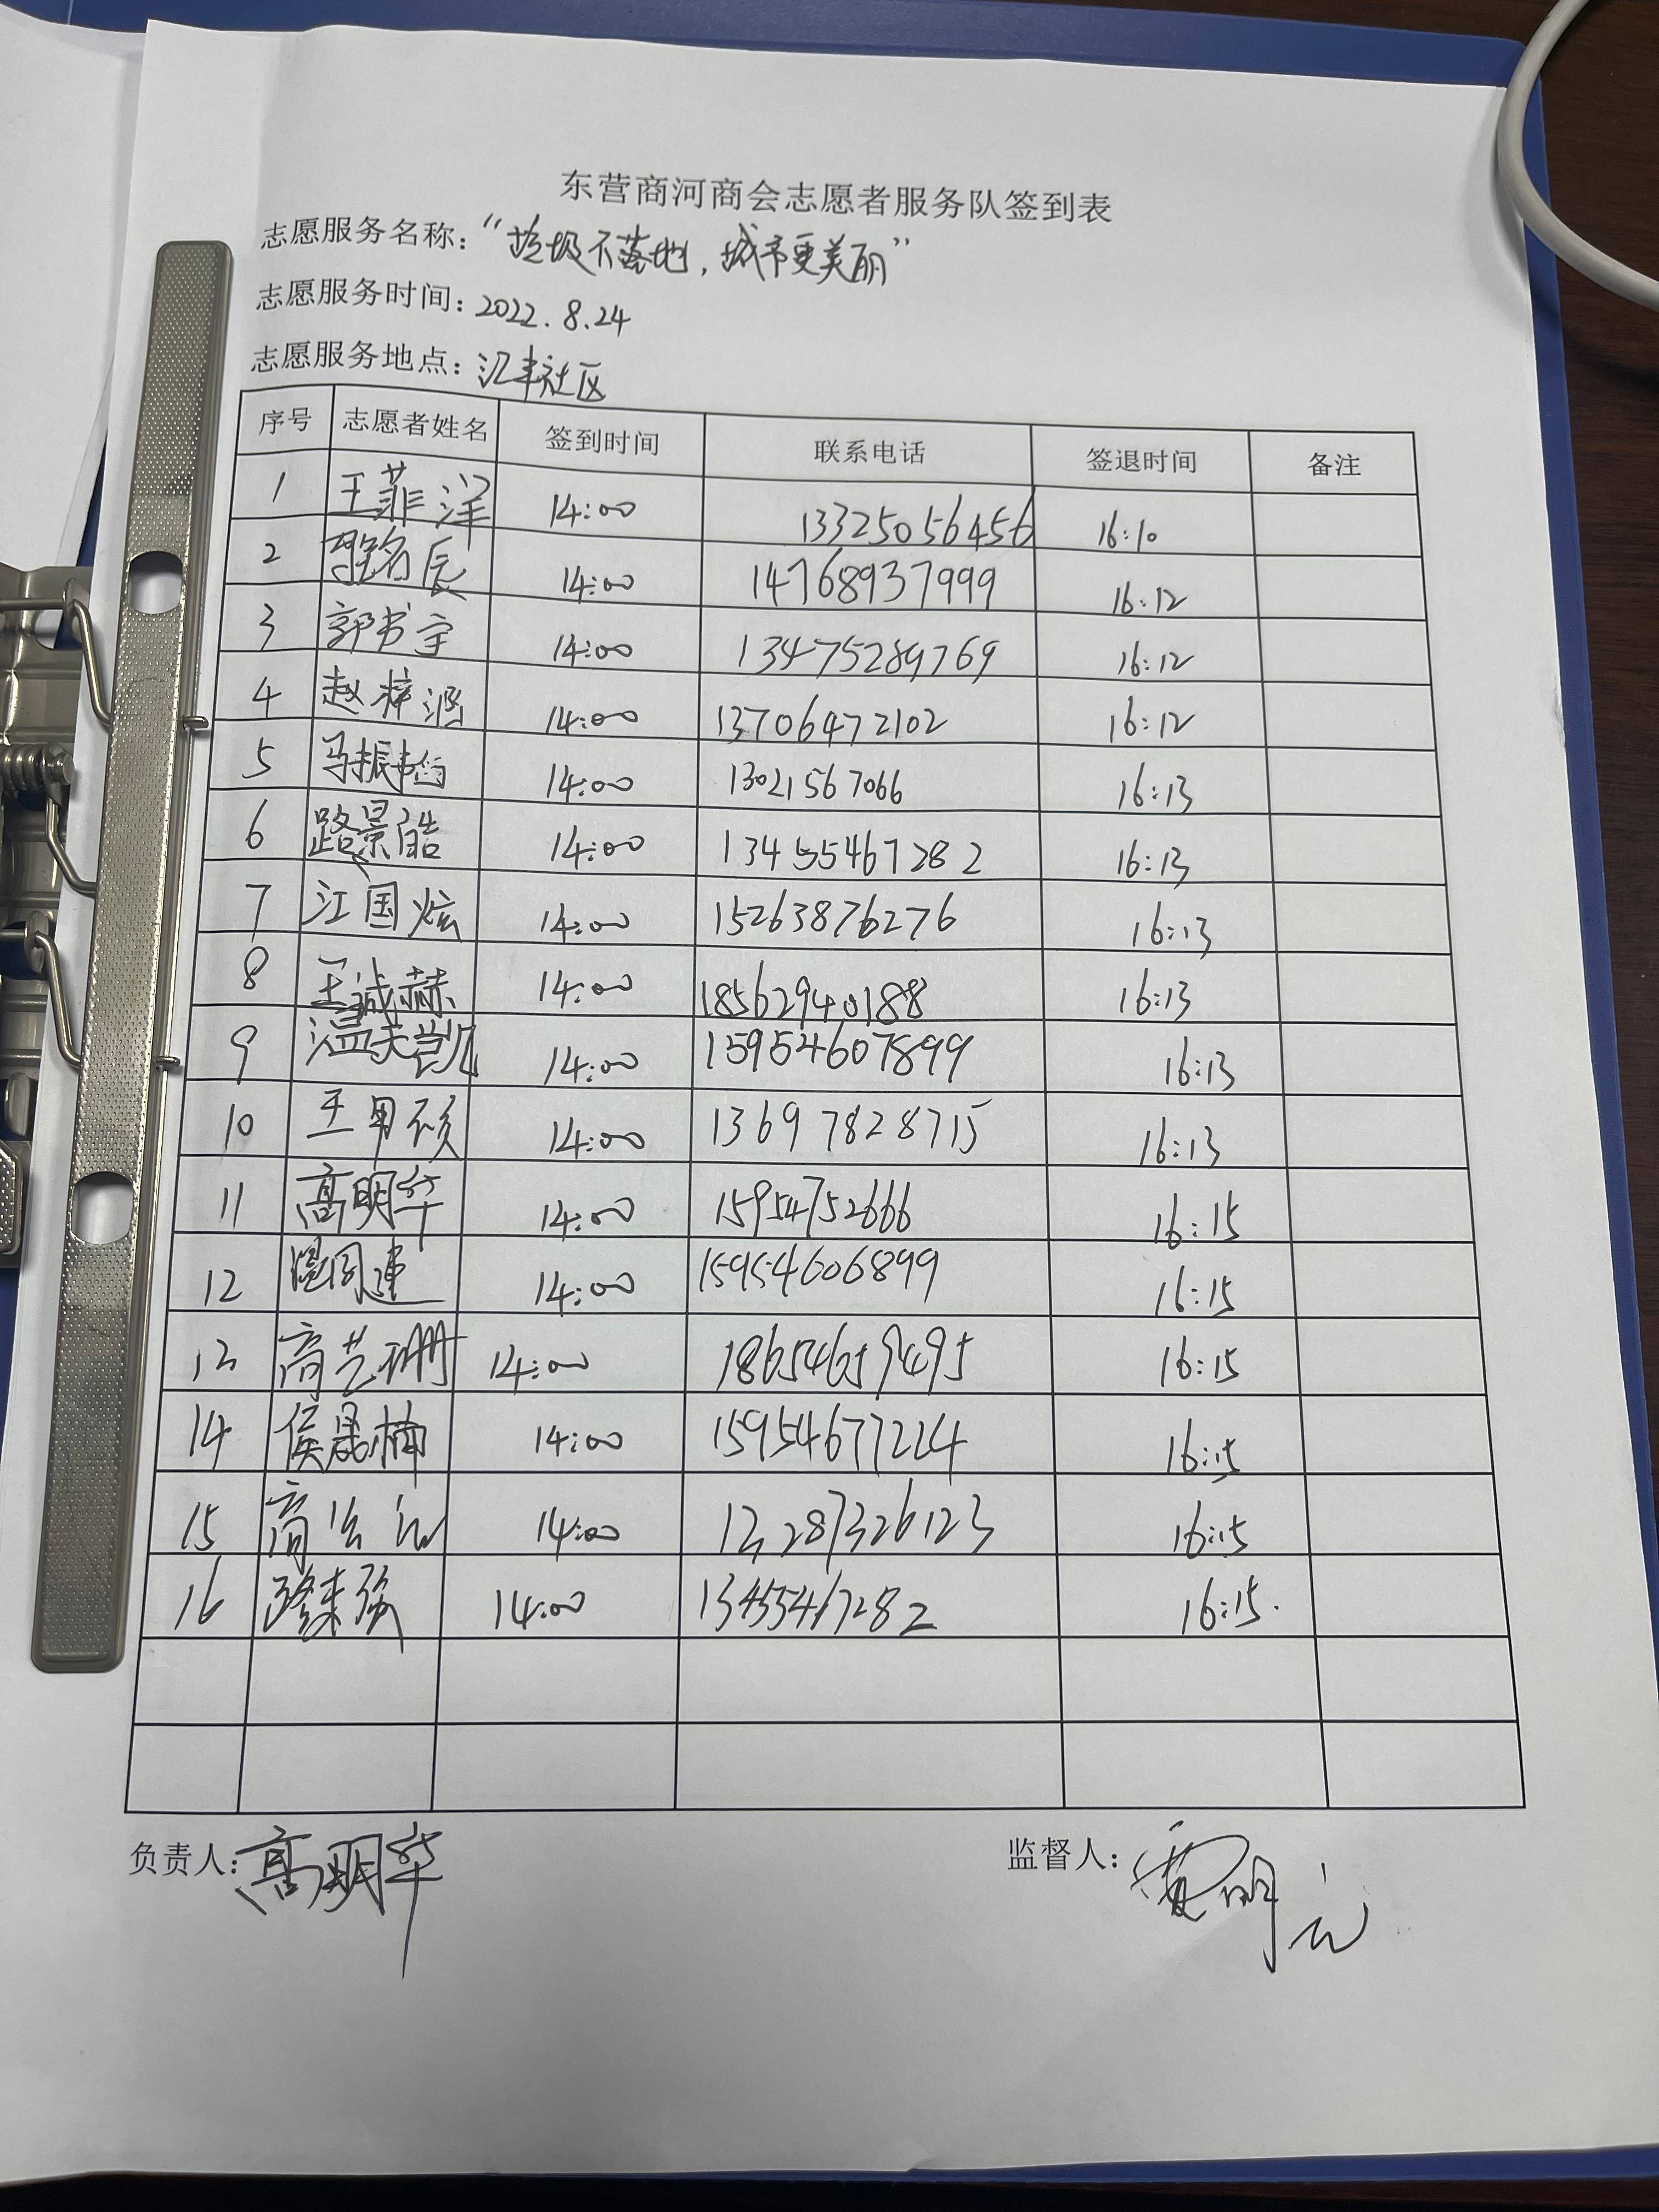 东营商河商会志愿者服务队签到表
志愿服务名称：“垃圾不落地，城市更美丽”
志愿服务时间：2022.8.24
志愿服务地点：汇丰社区
序号 志愿者姓名 签到时间 联系电话 签退时间 备注
1 王菲洋 14:00 13325056456 16:10
2 14:00 14768937999 16:12
3 郭书宇 14:00 13475289769 16:12
4 赵梓涵 14:00 13706472102 16:12
5 马振 14:00 13021567066 16:13
6 路景皓 14:00 13455467282 16:13
7 江国炫 14:00 15263876276 16:13
8 王诚赫 14:00 18562940188 16:13
9 温天凯 14:00 15954607899 16:13
10 王 14:00 13697828715 16:13
11 高明华 14:00 15954752666 16:15
12 温同建 14:00 15954606899 16:15
13 高艺珊 14:00 18654659495 16:15
14 侯晟楠 14:00 15954677224 16:15
15 高 14:00 16:15
16 路来强 14:00 13455467282 16:15.
负责人：高明华 监督人：